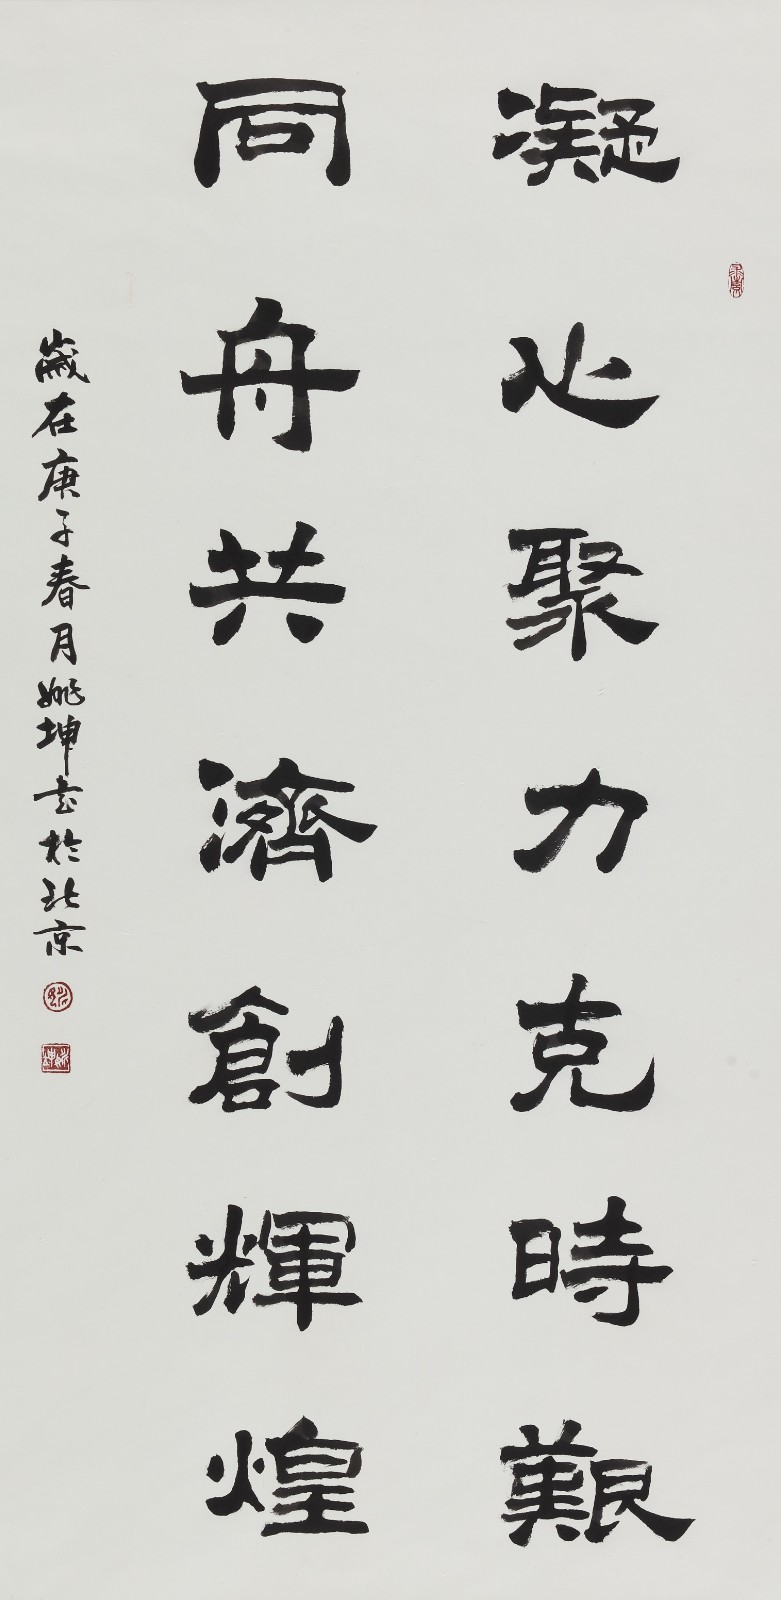 凝心聚力克時艱
同舟共濟創輝煌
歲在庚子春月姚坤書於北京